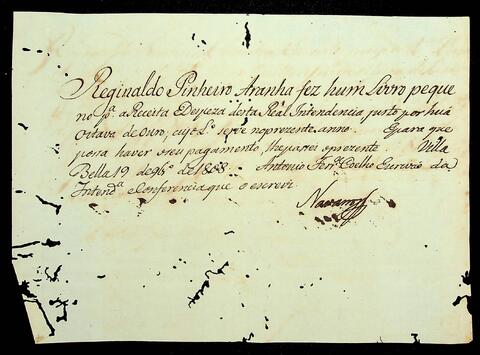 Reginaldo Pinheiro Aranha fez hum Livro peque
no pª a Receita e Despeza desta Real Intendencia justo por huã
Oitava de Ouro, cujo Lº serve no prezente anno. E para que
possa haver o seu pagamento, lhe passei o prezente. Villa
Bella 19 de 9bº de 1808. Antonio Ferrª Coelho Escrivão da
Intendª e Conferencia que o escrevi